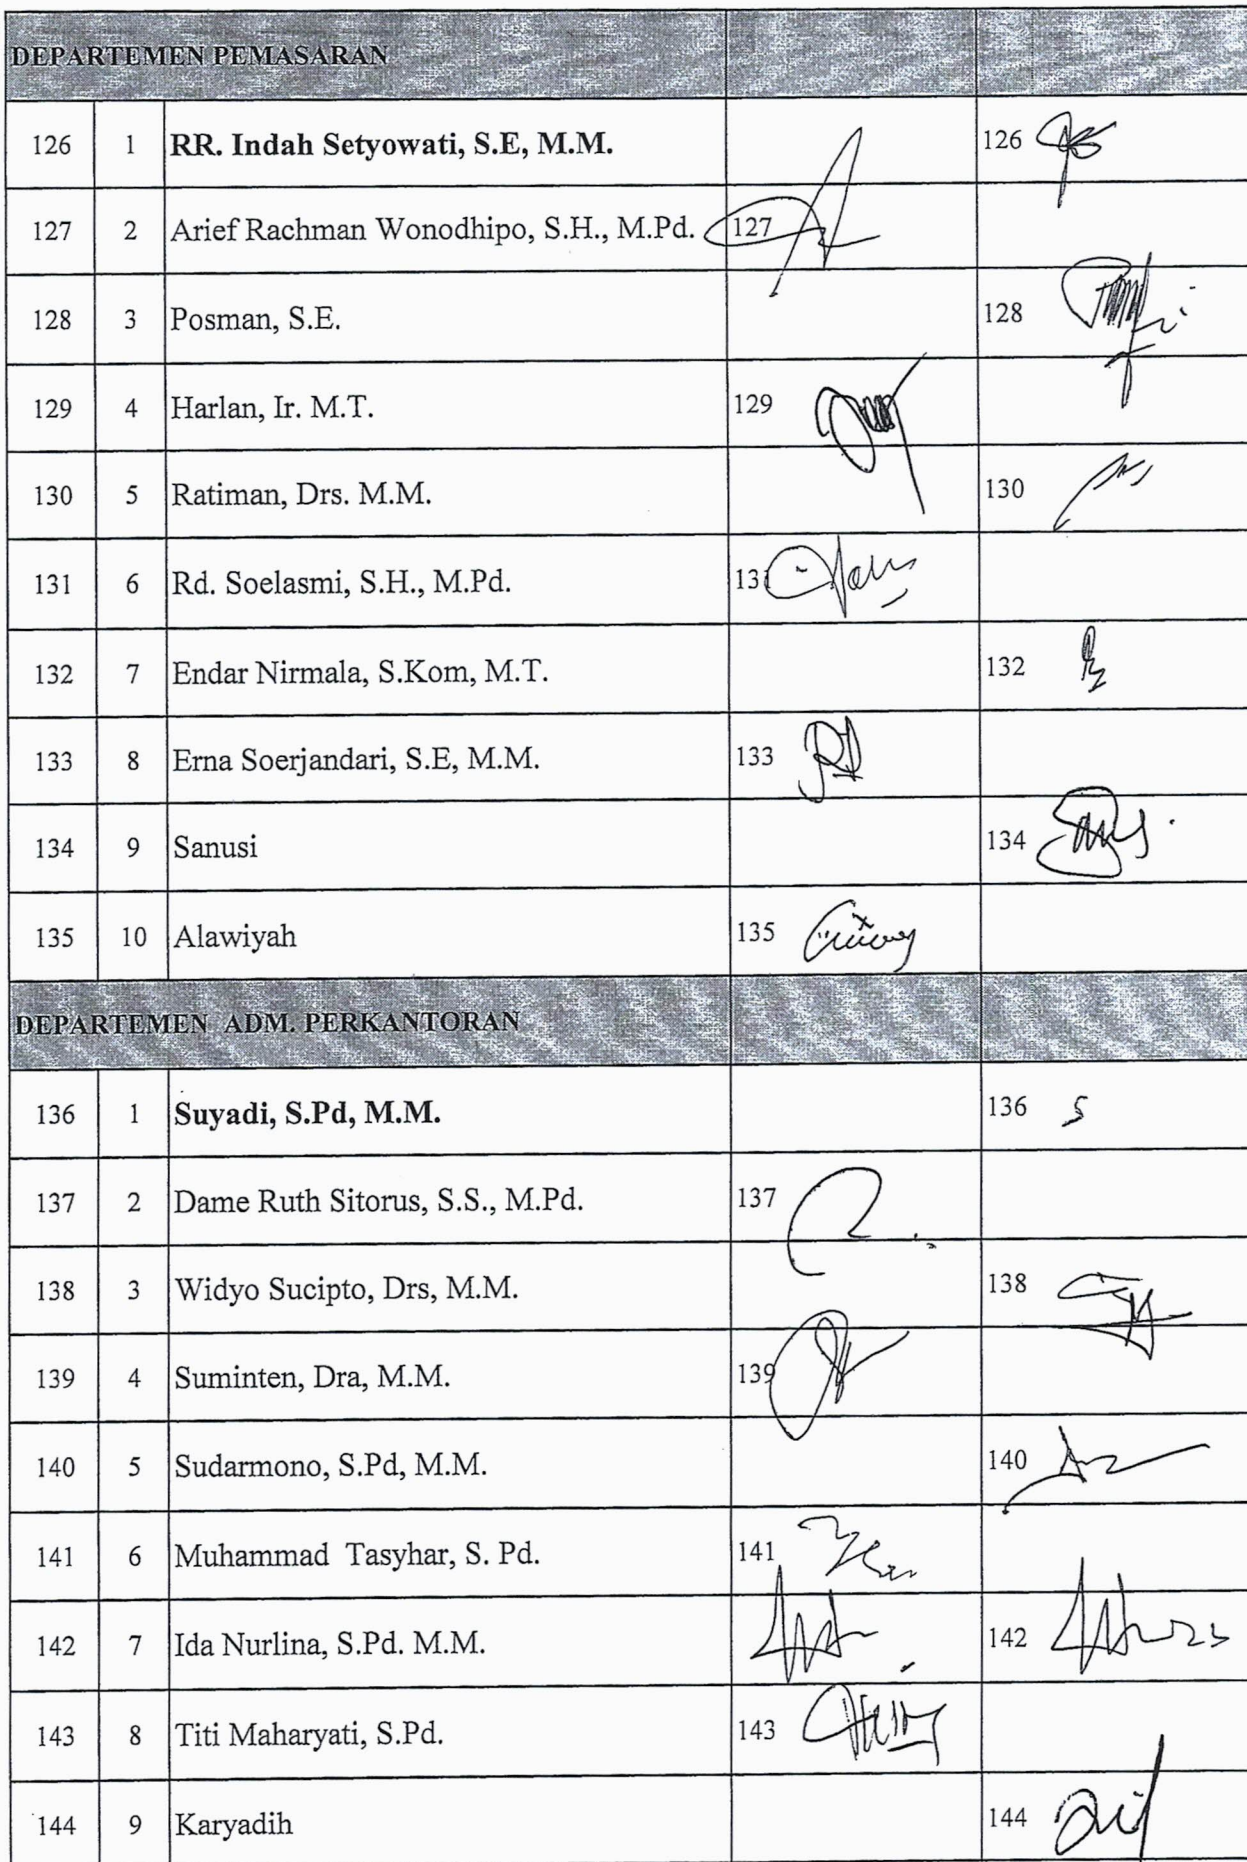 DEPARTEMEN PEMASARAN
126 1 RR. Indah Setyowati, S.E, M.M. 126
127 2 Arief Rachman Wonodhipo, S.H., M.Pd. 127
128 3 Posman, S.E. 128
129 4 Harlan, Ir. M.T. 129
130 5 Ratiman, Drs. M.M. 130
131 6 Rd. Soelasmi, S.H., M.Pd. 131
132 7 Endar Nirmala, S.Kom, M.T. 132
133 8 Erna Soerjandari, S.E, M.M. 133
134 9 Sanusi 134
135 10 Alawiyah 135
DEPARTEMEN ADM. PERKANTORAN
136 1 Suyadi, S.Pd, M.M. 136
137 2 Dame Ruth Sitorus, S.S., M.Pd. 137
138 3 Widyo Sucipto, Drs, M.M. 138
139 4 Suminten, Dra, M.M. 139
140 5 Sudarmono, S.Pd, M.M. 140
141 6 Muhammad Tasyhar, S. Pd. 141
142 7 Ida Nurlina, S.Pd. M.M. 142
143 8 Titi Maharyati, S.Pd. 143
144 9 Karyadih 144